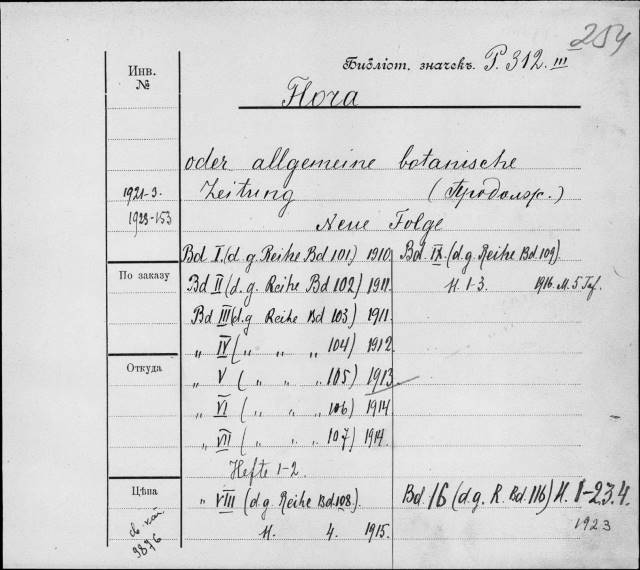 254
Инв. №
Библіот. значекъ. P. 312. III
Flora
oder allgemeine botanische
1921-3.
Zeitung (Продолж.)
1923-153
Neue Folge
Bd I. (d. g. Reihe Bd 101) 1910.
Bd. IX. (d. g. Reihe Bd. 109)
По заказу
Bd II (d. g. Reihe Bd 102) 1911.
H. 1-3. 1916. M. 5 Taf.
Bd III (d. g Reihe Bd 103) 1911.
„ IV ( „ „ „ 104) 1912.
Откуда
„ V ( „ „ „ 105) 1913
„ VI ( „ „ „ 106) 1914
„ VII ( „ „ „ 107) 1914.
Hefte 1-2.
Цѣна
„ VIII (d. g. Reihe Bd. 108).
Bd. 16 (d. g. R. Bd. 116) H. 1-2.3.4.
1923
H. 4. 1915.
9876